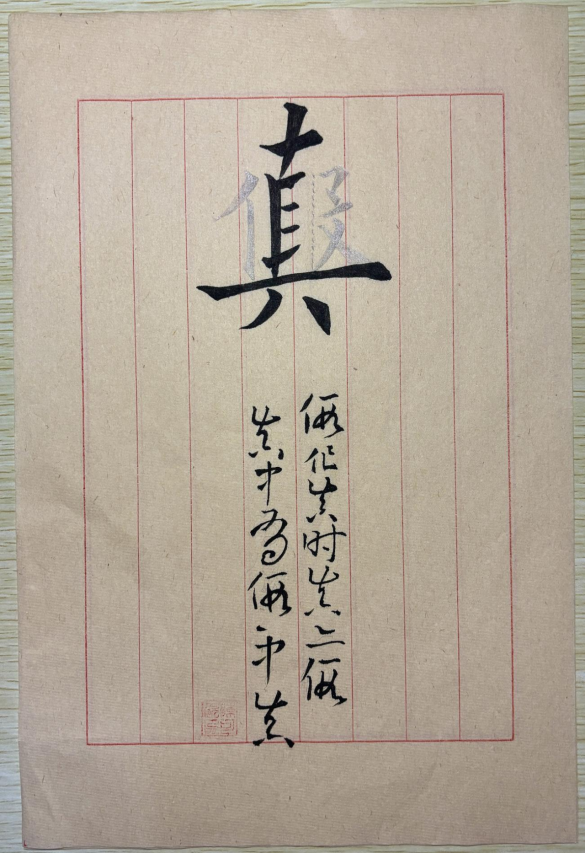 真
假
假作真时真亦假
真中 假 中真